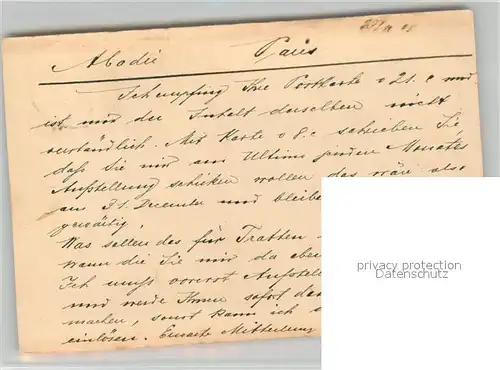 Abadie Paris
Ich empfing Ihre Postkarte v 21. c und
ist mir der Inhalt derselben nicht
verständlich. Mit Karte v 8. c schrieben Sie,
daß Sie mir am Ultimo jeden Monates
Aufstellung schicken wollen das wäre also
am 31. Decemb und bleibe
gewärtig.
Was sollen das für Tratten
wann die Sie mir da aber
Ich muß vorerst Aufstel
und werde Ihnen sofort
machen, sonst kann ich
einlösen. Erwarte Mitteilung
privacy protection
www.oldthing.de